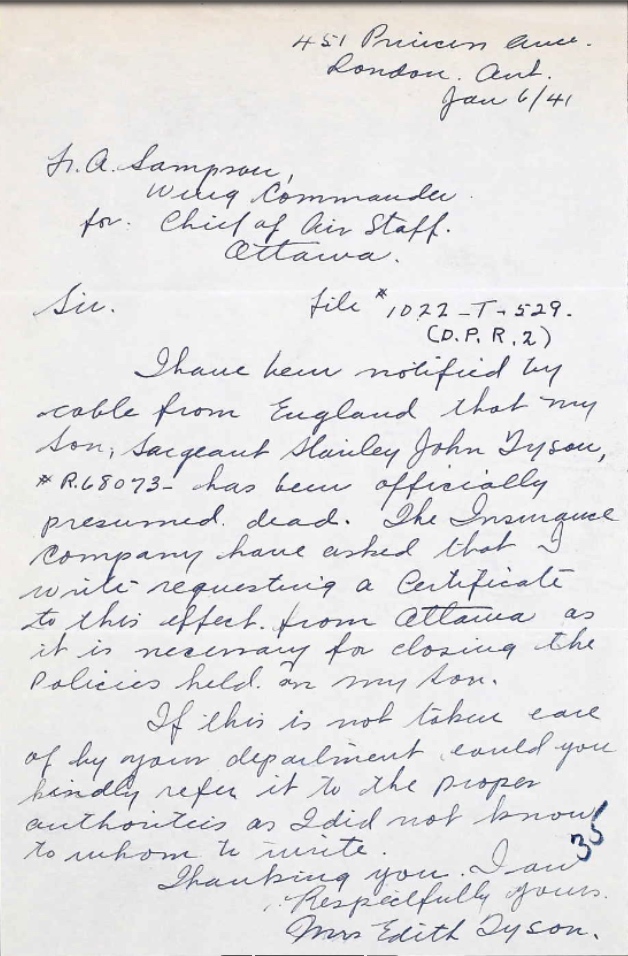 451 Princess Ave.
London. Ont.
Jan 6/41
F. A. Sampson,
Wing Commander
for. Chief of Air Staff.
Ottawa.
Sir. File # 1022-T-529.
(D.P.R.2)
I have been notified by
cable from England that my
son, Sargeant Stanley John Tyson,
# R.68073- has been officially
presumed dead. The Insurance
Company have asked that I
write requesting a Certificate
to this effect. from Ottawa as
it is necessary for closing the
Policies held on my son.
If this is not taken care
of by your department, could you
kindly refer it to the proper
authorities as I did not know
to whom to write.
35
Thanking you. I am
Respectfully yours.
Mrs Edith Tyson.